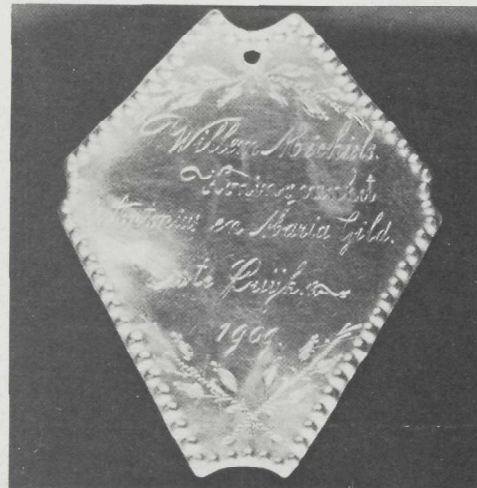 Willem Michiels.
Koning van het
Antonius en Maria Gild.
te Cuijk.
190